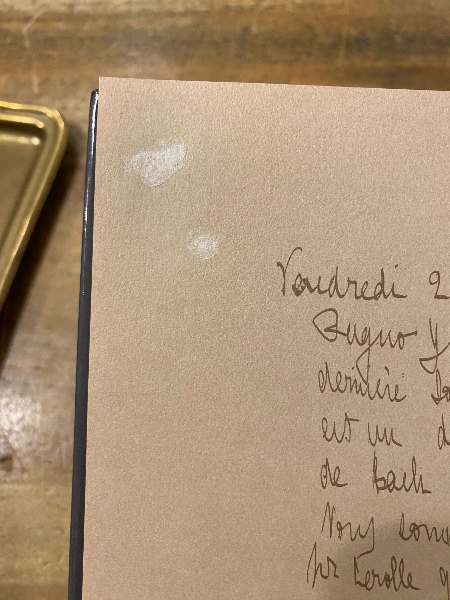 Vendredi 2
Pugno Y
dernière So
est un d
de Bach
Nous somm
pr Lerolle q